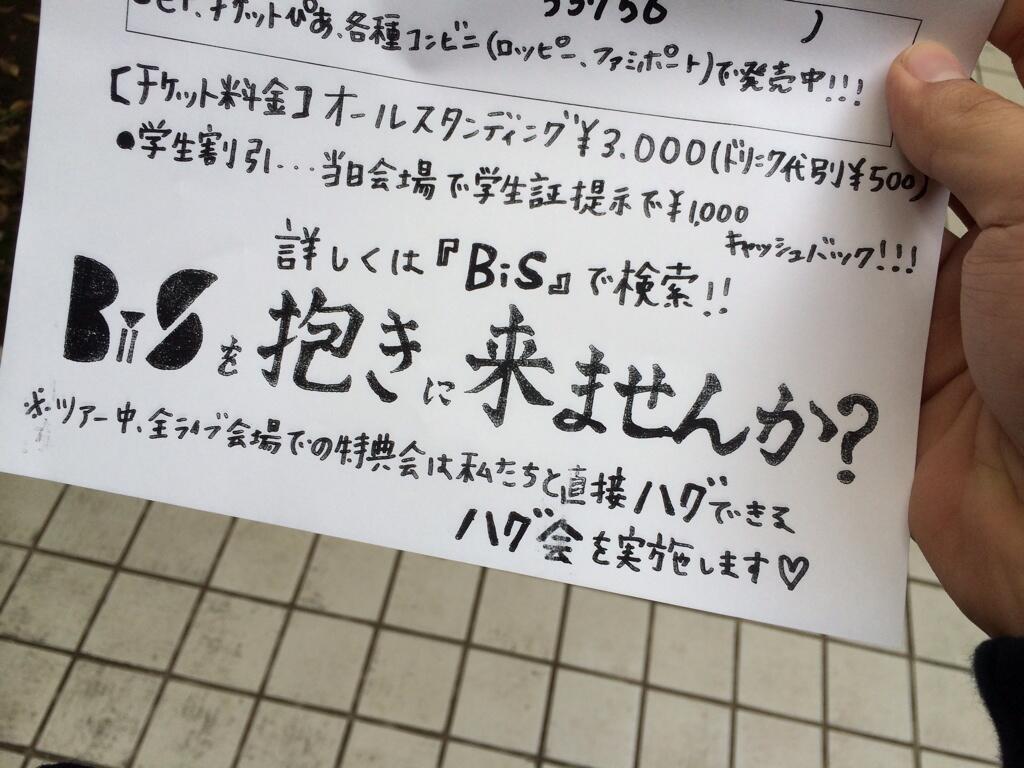 チケットぴあ、各種コンビニ(ロッピー、ファミポート)で発売中!!!
[チケット料金]オールスタンディング¥3.000(ドリンク代別¥500)
●学生割引…当日会場で学生証提示で¥1,000
キャッシュバック!!!
詳しくは『BiS』で検索!!
BiSを抱きに来ませんか?
※ツアー中、全ライブ会場での特典会は私たちと直接ハグできる
ハグ会を実施します♡